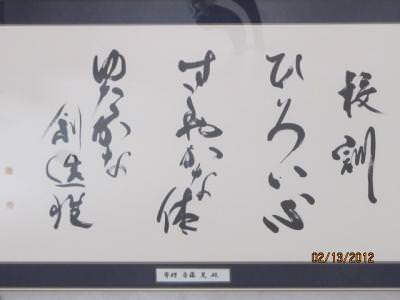 校訓
ひろい心
すこやかな体
ゆたかな
創造性
02/13/2012